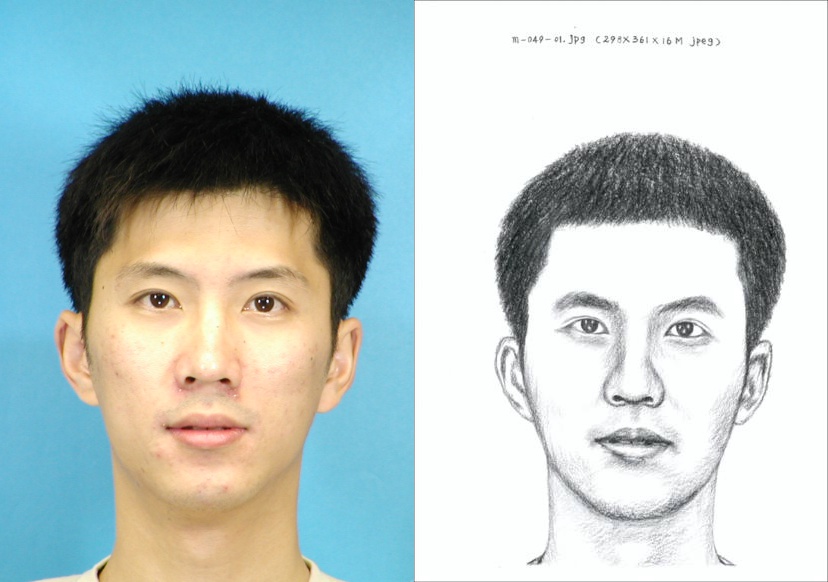 m-049-01.jpg (298X361X16M jpeg)